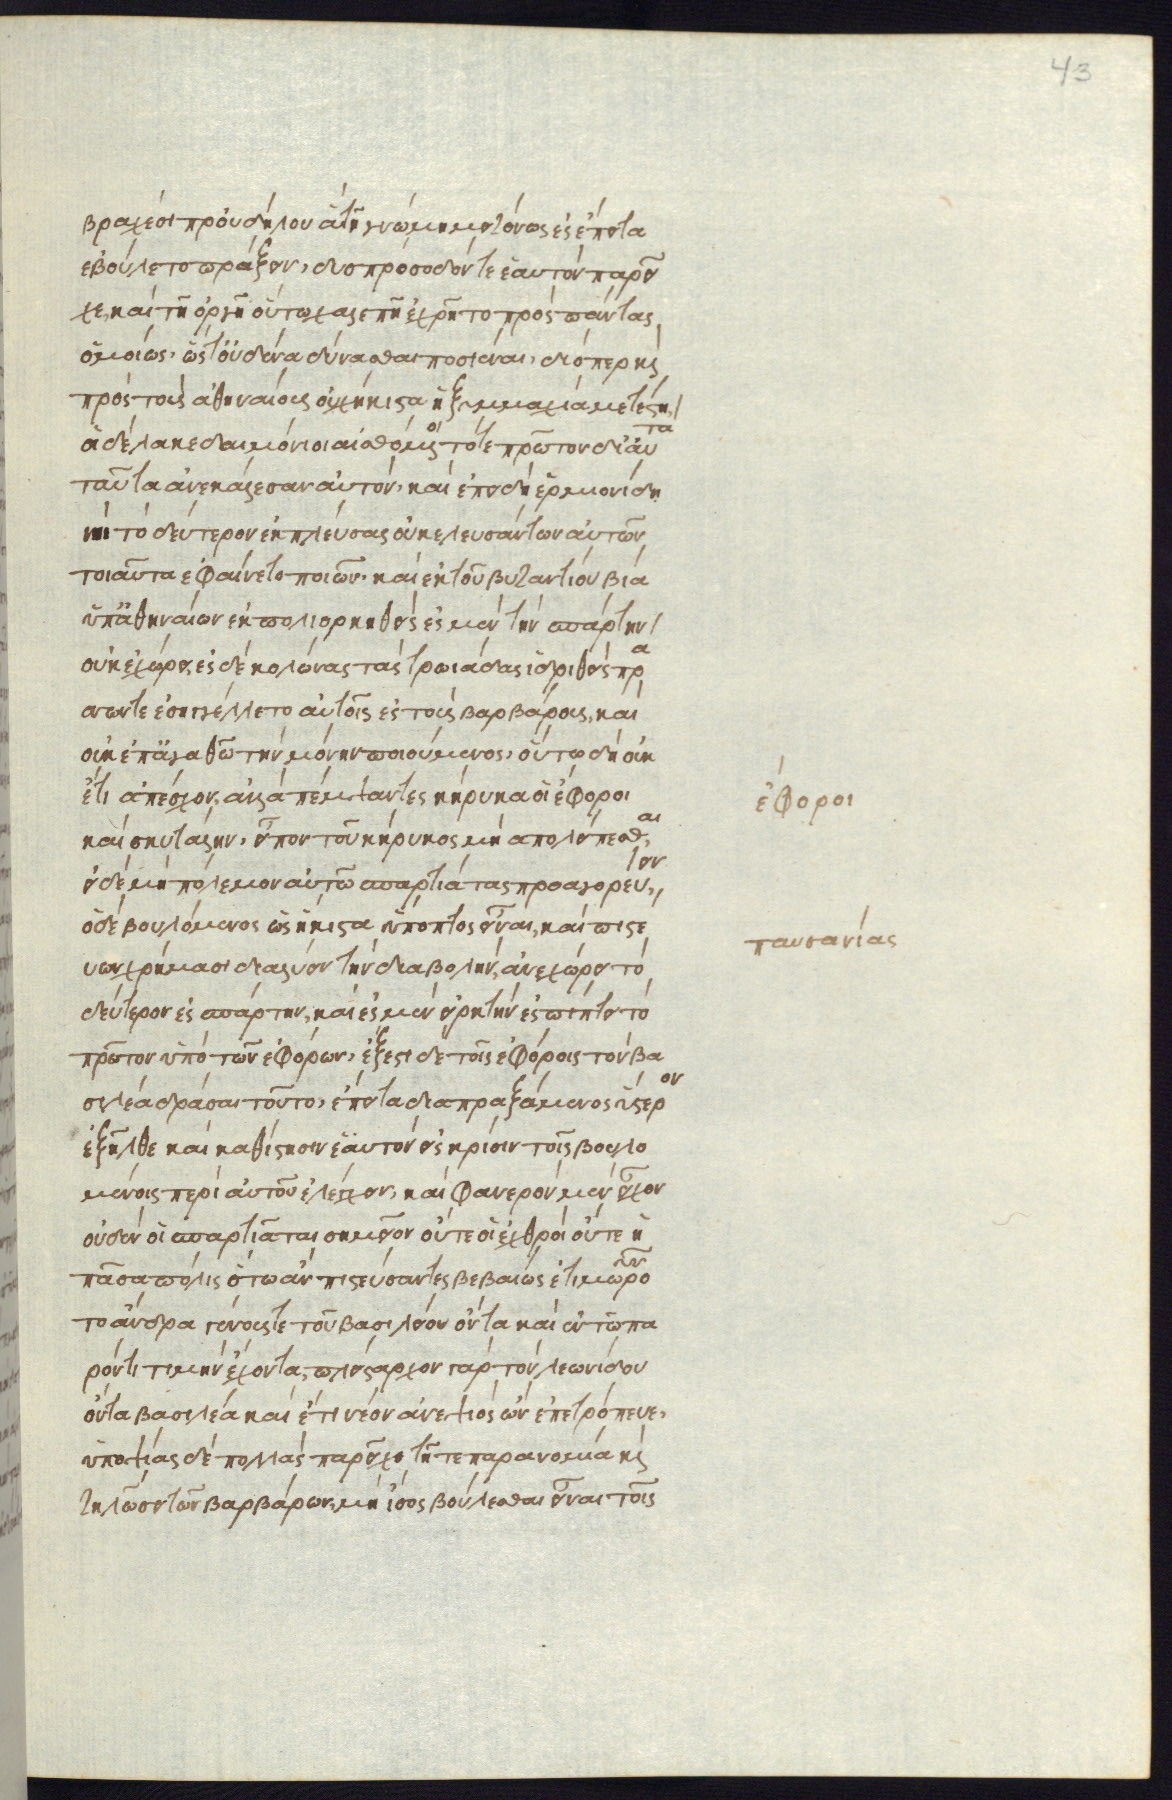 43
βραχέσι προὐδήλου ἃ τῇ γνώμῃ μειζόνως ἐς ἔπειτα
ἐβούλετο πράξειν, δυσπρόσοδόν τε ἑαυτὸν παρεῖ
χε, καὶ τῇ ὀργῇ οὕτω χαλεπῇ ἐχρῆτο πρὸς πάντας
ὁμοίως, ὥστ' οὐδένα δύνασθαι προσιέναι, διόπερ καὶ
πρὸς τοὺς ἀθηναίους οὐχ ἥκιστα ἡ ξυμμαχία μετέστη,
οἱ δὲ λακεδαιμόνιοι αἰσθόμενοι τότε πρῶτον δι' αὐτὰ
ταῦτα ἀνεκάλεσαν αὐτόν, καὶ ἐπειδὴ ἑρμιονίδι νηῒ
τὸ δεύτερον ἐκπλεύσας οὐ κελευσάντων αὐτῶν
τοιαῦτα ἐφαίνετο ποιῶν, καὶ ἐκ τοῦ βυζαντίου βίᾳ
ὑπ' ἀθηναίων ἐκπολιορκηθεὶς ἐς μὲν τὴν σπάρτην
οὐκ ἐχώρει, ἐς δὲ κολώνας τὰς τρωιάδας ἱδρυθεὶς πρά
σσων τε ἐσηγγέλλετο αὐτοῖς ἐς τοὺς βαρβάρους, καὶ
οὐκ ἐπ' ἀγαθῷ τὴν μονὴν ποιούμενος, οὕτω δὴ οὐκ
ἔτι ἀπέσχον, ἀλλὰ πέμψαντες κήρυκα οἱ ἔφοροι
καὶ σκυτάλην, εἶπον τοῦ κήρυκος μὴ ἀπολείπεσθαι,
εἰ δὲ μὴ πόλεμον αὐτῷ σπαρτιάτας προαγορεύειν,
ὁ δὲ βουλόμενος ὡς ἥκιστα ὕποπτος εἶναι, καὶ πιστε
ύων χρήμασι διαλύσειν τὴν διαβολήν, ἀνεχώρει τὸ
δεύτερον ἐς σπάρτην, καὶ ἐς μὲν εἱρκτὴν ἐσπίπτει τὸ
πρῶτον ὑπὸ τῶν ἐφόρων, ἔξεστι δὲ τοῖς ἐφόροις τὸν βα
σιλέα δρᾶσαι τοῦτο, ἔπειτα διαπραξάμενος ὕστερον
ἐξῆλθε καὶ καθίστησιν ἑαυτὸν ἐς κρίσιν τοῖς βουλο
μένοις περὶ αὐτοῦ ἐλέγχειν, καὶ φανερὸν μὲν εἶχον
οὐδὲν οἱ σπαρτιᾶται σημεῖον οὔτε οἱ ἐχθροὶ οὔτε ἡ
πᾶσα πόλις ὅτῳ ἂν πιστεύσαντες βεβαίως ἐτιμωροῦν
το ἄνδρα γένους τε τοῦ βασιλείου ὄντα καὶ ἐν τῷ πα
ρόντι τιμὴν ἔχοντα, πλείσταρχον γὰρ τὸν λεωνίδου
ὄντα βασιλέα καὶ ἔτι νέον ἀνεψιὸς ὢν ἐπετρόπευε,
ὑποψίας δὲ πολλὰς παρεῖχε τῇ τε παρανομίᾳ καὶ
ζηλώσει τῶν βαρβάρων, μὴ ἴσος βούλεσθαι εἶναι τοῖς
ἔφοροι
παυσανίας